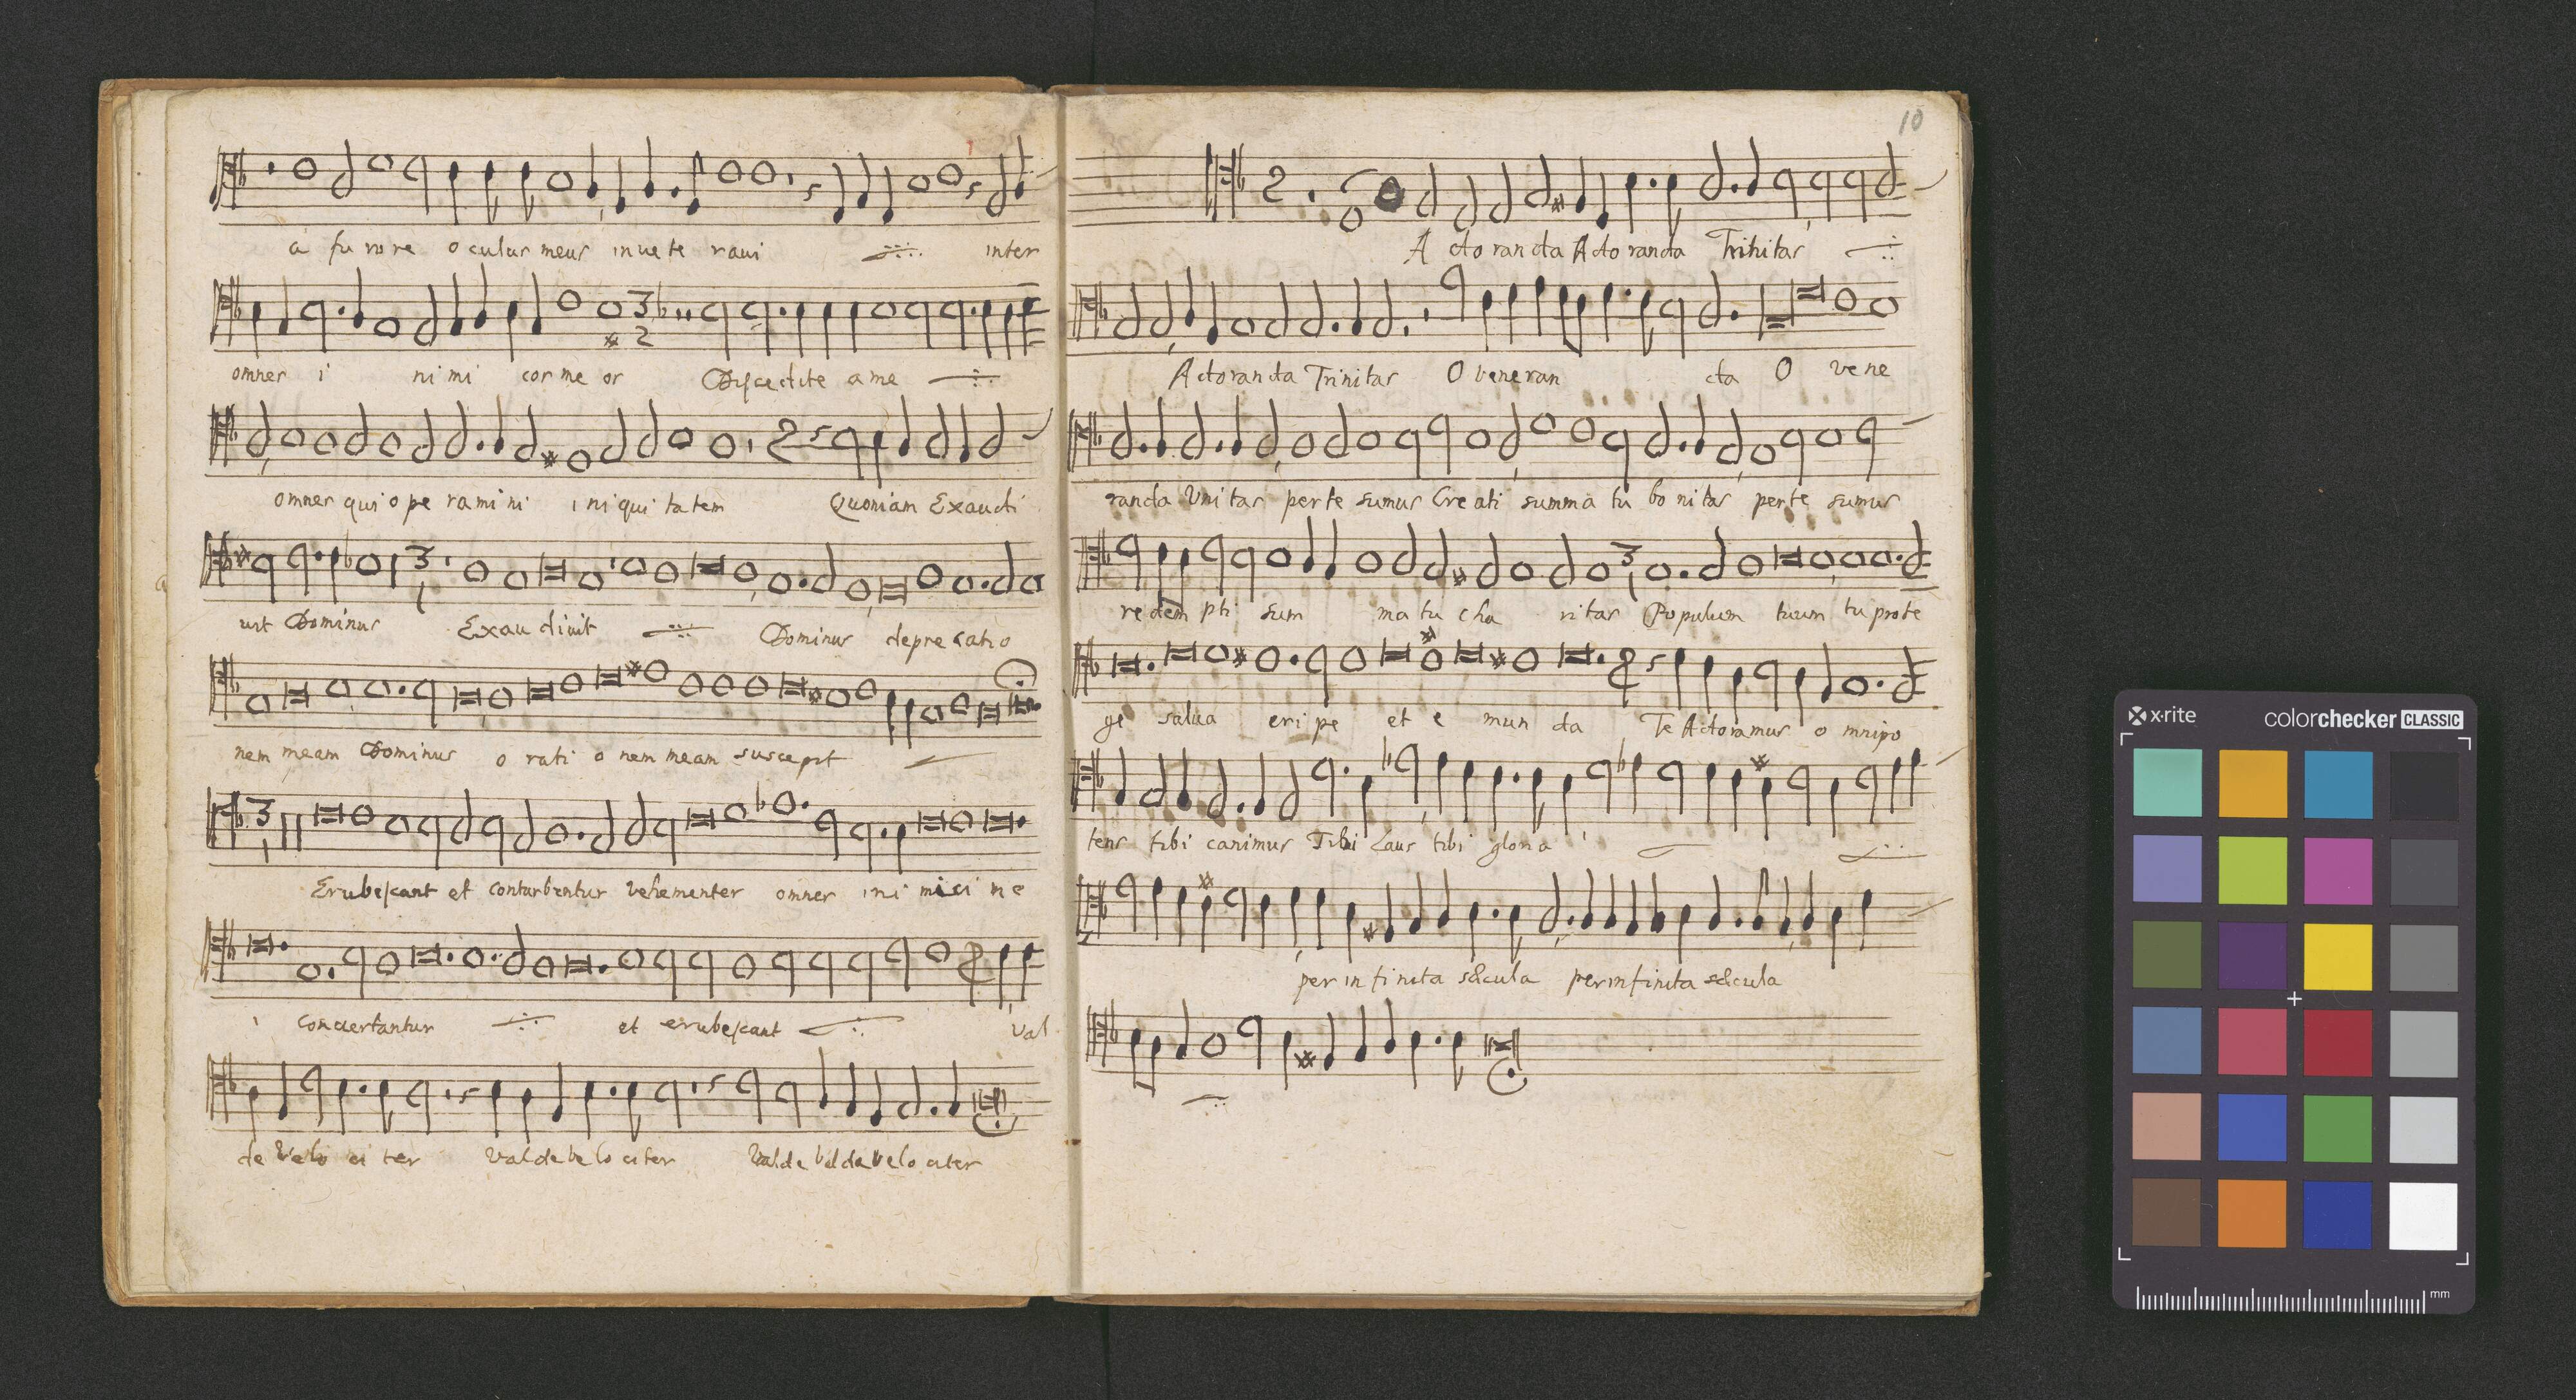 a fu ro re o culus meus in ve te raui inter
omnes i ni mi cos me os Discedite a me
omnes qui o pe ra mi ni i ni qui ta tem Quoniam Exaudi
uit Dominus Exau diuit Dominus depre catio
nem meam Dominus o rati o nem meam suscepit
Erubescant et conturbentur vehementer omnes ini mici me
i conuertantur et erubescant val
de velo ci ter valde ve lo citer valde valde velo citer
10
A do ran da Ado randa Trinitas
Adoranda Trinitas O veneran da O ve ne
randa Vnitas per te sumus Cre ati summa tu bo nitas per te sumus
redem pti sum ma tu cha ritas Populum tuum tu prote
ge salua eri pe et e mun da Te Adoramus o mnipo
tens tibi canimus Tibi Laus tibi gloria
per in fi nita sæcula per infinita sæcula
x·rite colorchecker CLASSIC
mm